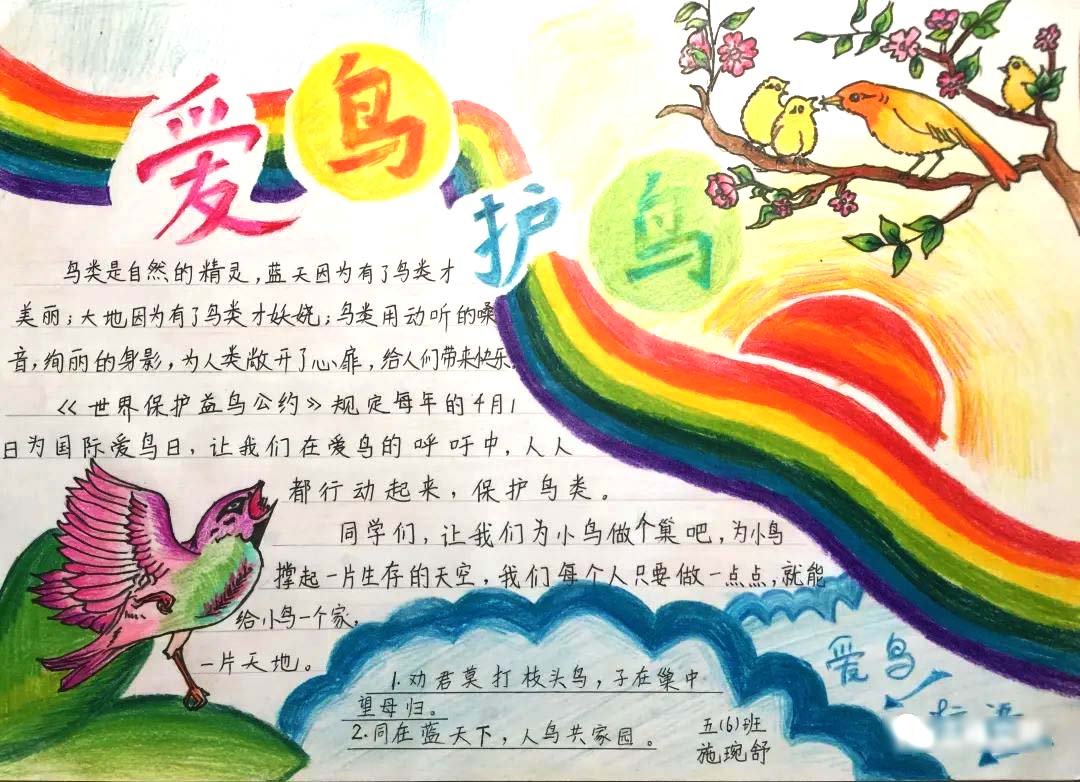 爱鸟
护鸟
鸟类是自然的精灵，蓝天因为有了鸟类才
美丽；大地因为有了鸟类才妖娆；鸟类用动听的嗓
音，绚丽的身影，为人类敞开了心扉，给人们带来快乐。
《世界保护益鸟公约》规定每年的4月1
日为国际爱鸟日，让我们在爱鸟的呼吁中，人人
都行动起来，保护鸟类。
同学们，让我们为小鸟做个巢吧，为小鸟
撑起一片生存的天空，我们每个人只要做一点点，就能
给小鸟一个家，
一片天地。
1.劝君莫打枝头鸟，子在巢中
望母归。
2.同在蓝天下，人鸟共家园。
五(6)班
施琬舒
爱鸟